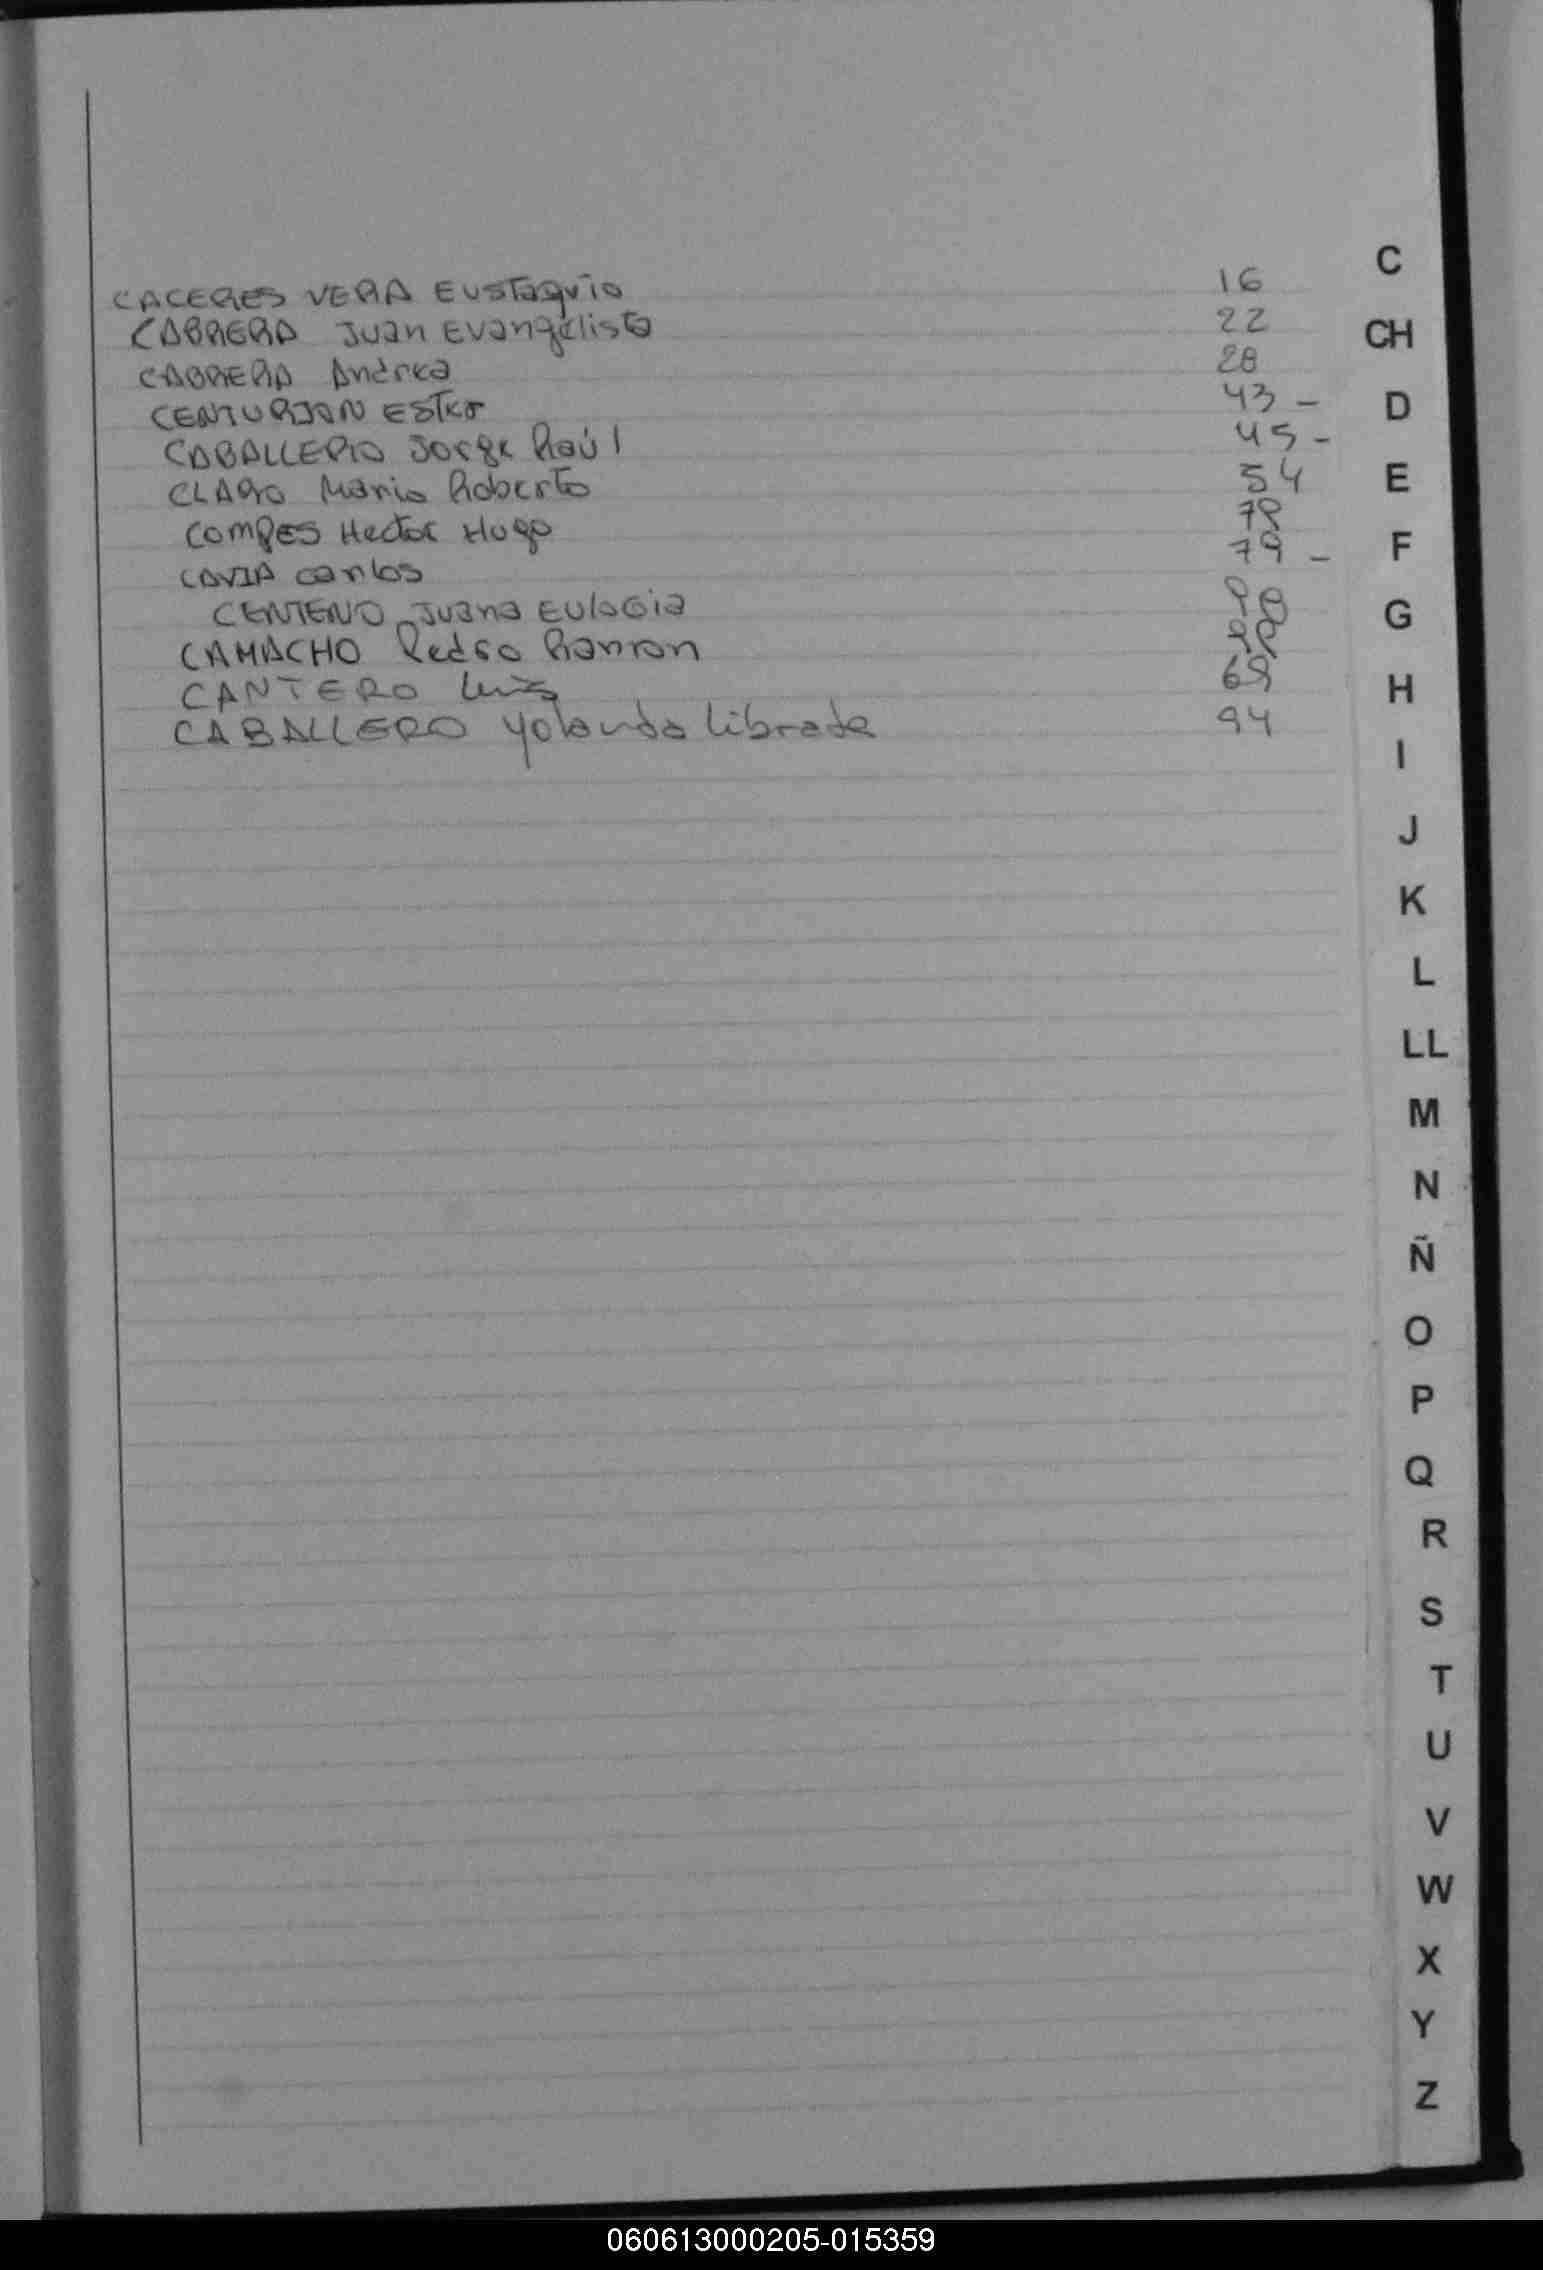 CACERES VERA Eustaquio 16
CABRERA Juan Evangelista 22
CABRERA Andrea 28
CENTURION Ester 43 -
CABALLERO Jorge Raúl 45 -
CLARO Mario Roberto 54
Compes Hector Hugo 78
CAVIA Carlos 79 -
CENTENO Juana Eulogia
CAMACHO Pedro Ramon
CANTERO Luis 69
CABALLERO Yolanda Librada 94
C
CH
D
E
F
G
H
I
J
K
L
LL
M
N
Ñ
O
P
Q
R
S
T
U
V
W
X
Y
Z
060613000205-015359